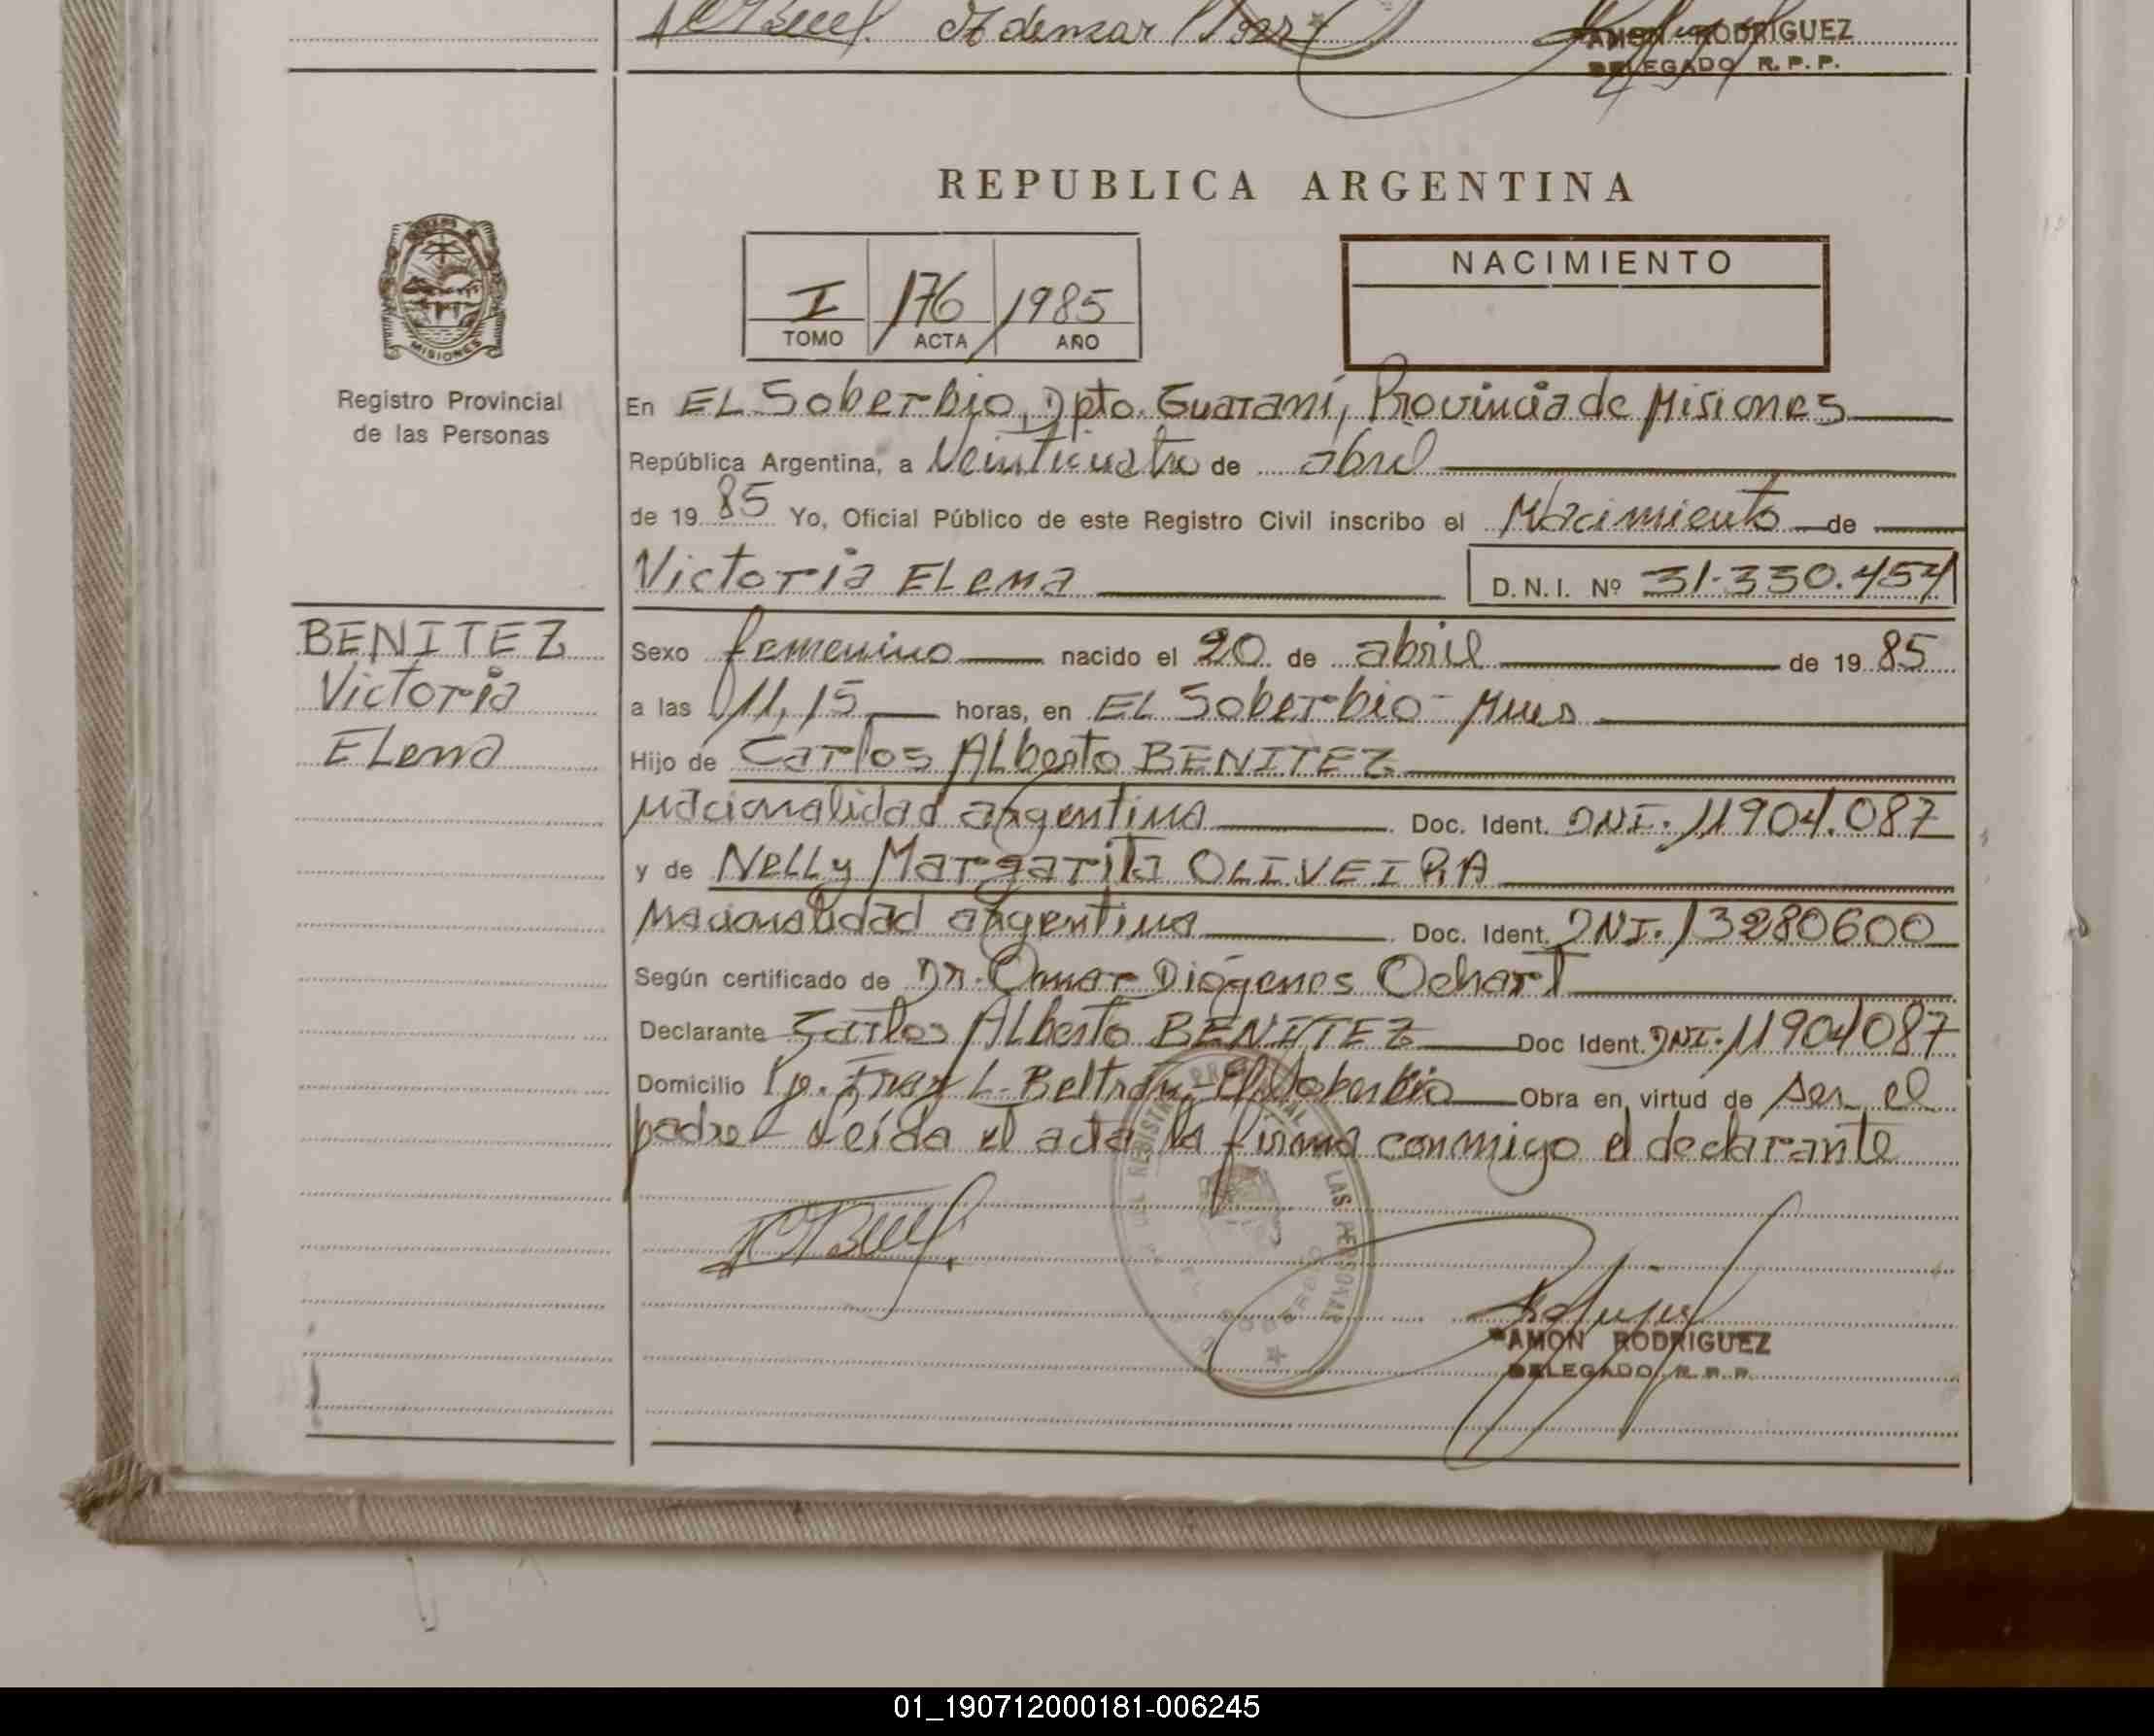 Ademar
RAMON RODRIGUEZ
DELEGADO R. P. P.
REPUBLICA ARGENTINA
I 176 1985
TOMO ACTA AÑO
NACIMIENTO
MISIONES
Registro Provincial
de las Personas
En EL Soberbio, Dpto. Guaraní, Provincia de Misiones
República Argentina, a Veinticuatro de abril
de 19 85 Yo, Oficial Público de este Registro Civil inscribo el Nacimiento de
Victoria ELena D.N.I. Nº 31.330.454
BENITEZ
Victoria
ELena
Sexo femenino nacido el 20 de abril de 19 85
a las 11,15 horas, en EL Soberbio - Mnes
Hijo de Carlos ALberto BENITEZ
nacionalidad argentina Doc. Ident. DNI. 11904.087
y de NeLLy Margarita OLIVEIRA
nacionalidad argentina Doc. Ident. DNI. 13280600
Según certificado de Dr. Omar Diógenes Ochart
Declarante Carlos ALberto BENITEZ Doc Ident. DNI. 11904087
Domicilio Fray L. Beltrán - El Soberbio Obra en virtud de ser el
padre leída el acta la firma conmigo el declarante
REGISTRO PROVINCIAL LAS PERSONAS
SOBERBIO
RAMON RODRIGUEZ
DELEGADO R. P. P.
01_190712000181-006245